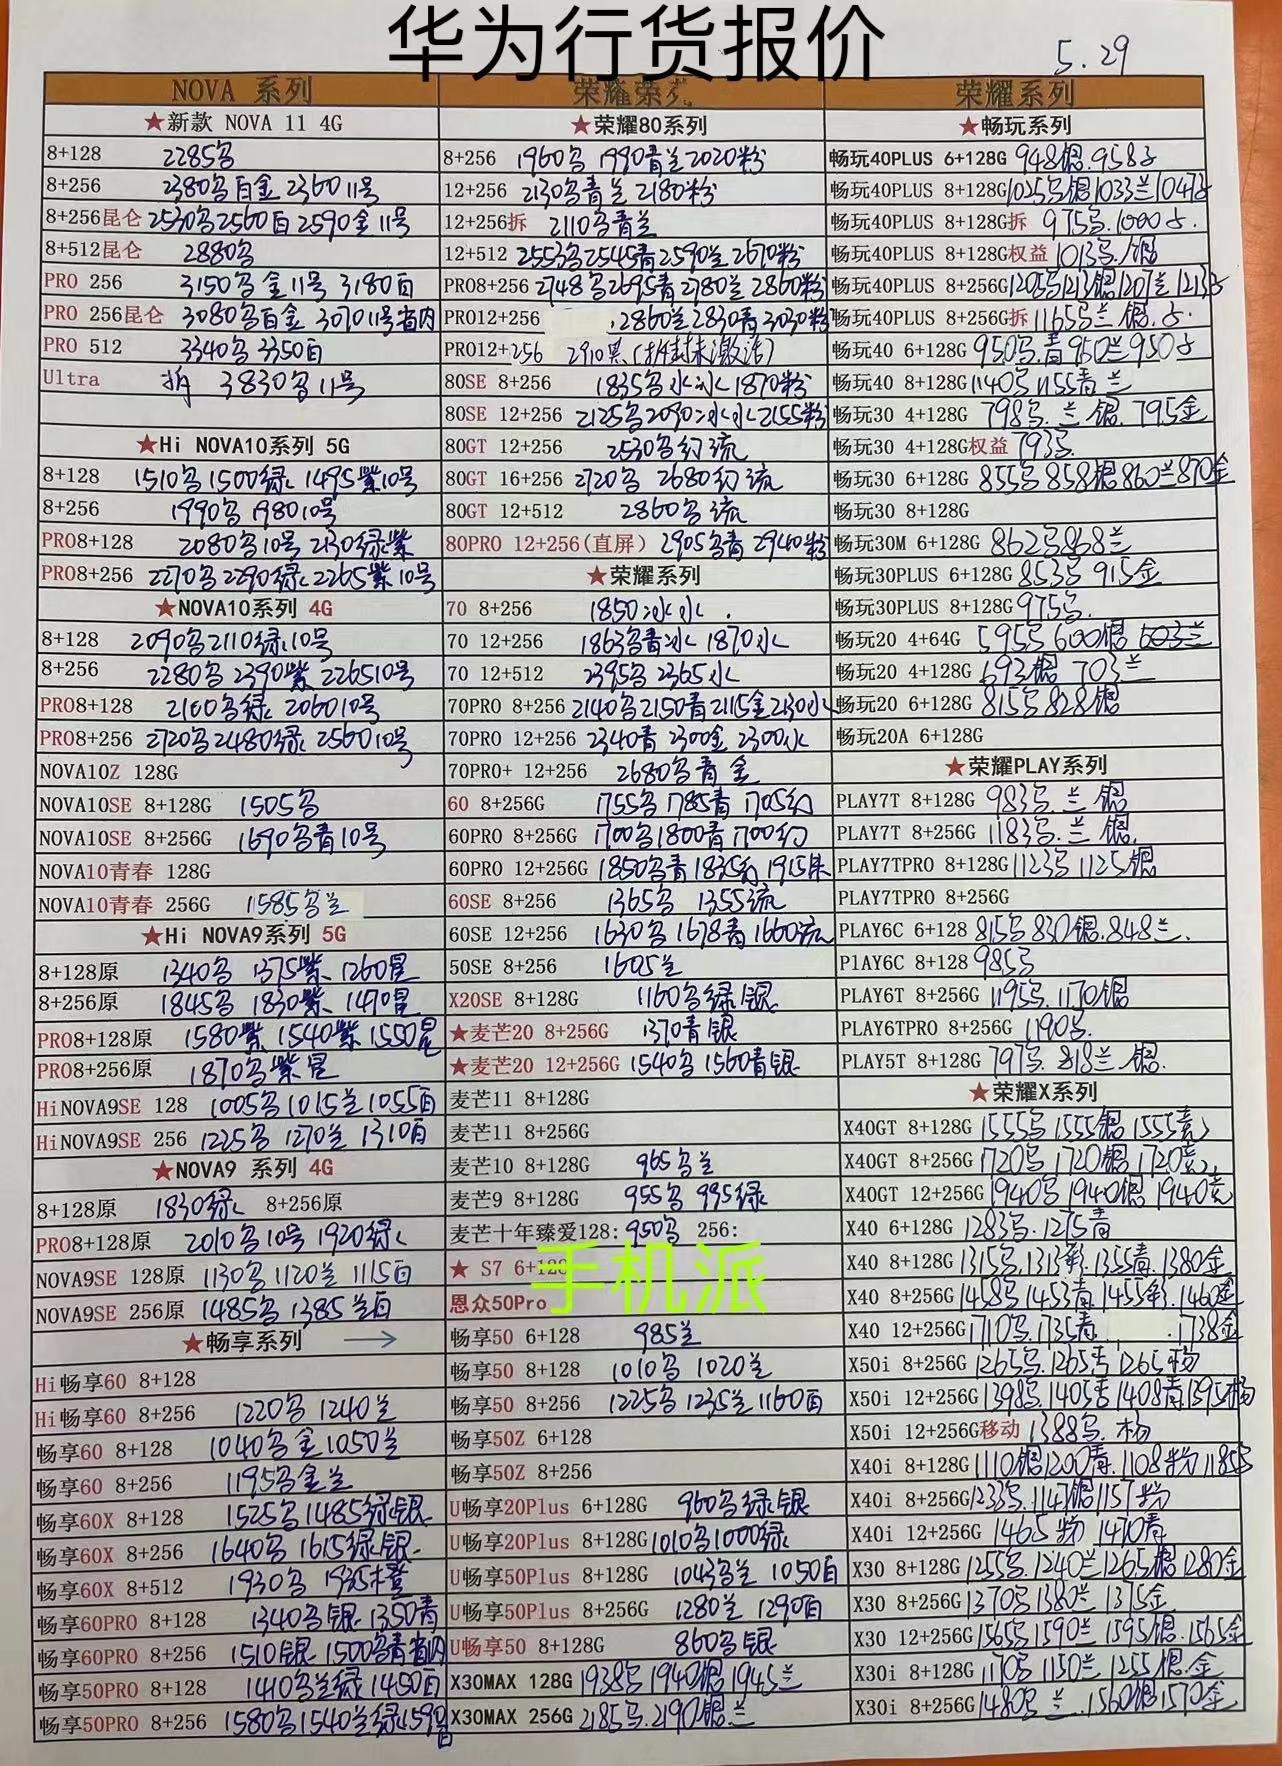 华为行货报价
5.29
NOVA 系列
★新款 NOVA 11 4G
8+128 2285乌
8+256 2380乌白金 2360 11号
8+256昆仑 2530乌2560白 2590金 11号
8+512昆仑 2880乌
PRO 256 3150乌金11号 3180白
PRO 256昆仑 3080乌白金 3070 11号省内
PRO 512 3340乌 3350白
Ultra 拆 3830乌 11号
★Hi NOVA10系列 5G
8+128 1510乌 1500绿 1495紫10号
8+256 1990乌 1980 10号
PRO8+128 2080乌10号 2130绿紫
PRO8+256 2270乌2290绿 2265紫10号
★NOVA10系列 4G
8+128 2090乌2110绿10号
8+256 2280乌 2390紫 2265 10号
PRO8+128 2100乌绿 2060 10号
PRO8+256 2720乌2480绿 2560 10号
NOVA10Z 128G
NOVA10SE 8+128G 1505乌
NOVA10SE 8+256G 1690乌青10号
NOVA10青春 128G
NOVA10青春 256G 1585乌兰
★Hi NOVA9系列 5G
8+128原 1340乌 1375紫 1260星
8+256原 1845乌 1830紫 1470星
PRO8+128原 1580紫 1540紫 1550星
PRO8+256原 1870乌紫星
HiNOVA9SE 128 1005乌 1015兰 1055白
HiNOVA9SE 256 1225乌 1270兰 1310白
★NOVA9 系列 4G
8+128原 1830绿 8+256原
PRO8+128原 2010乌10号 1920绿
NOVA9SE 128原 1130乌 1120兰 1115白
NOVA9SE 256原 1485乌 1385兰白
★畅享系列 →
Hi畅享60 8+128
Hi畅享60 8+256 1220乌 1240兰
畅享60 8+128 1040乌金 1050兰
畅享60 8+256 1195乌金兰
畅享60X 8+128 1525乌 1485绿银
畅享60X 8+256 1640乌 1615绿银
畅享60X 8+512 1930乌 1935橙
畅享60PRO 8+128 1340乌银 1350青
畅享60PRO 8+256 1510银 1500乌青省内
畅享50PRO 8+128 1410乌兰绿 1450白
畅享50PRO 8+256 1580乌1540兰绿1590白
荣耀荣
★荣耀80系列
8+256 1960乌 1990青兰 2020粉
12+256 2130乌青兰 2180粉
12+256拆 2110乌青兰
12+512 2553乌2545青2590兰2670粉
PRO8+256 2748乌2695青2780兰 2860粉
PRO12+256 .2860兰2830青3030粉
PRO12+256 2910黑(拆封未激活)
80SE 8+256 1835乌冰水 1870粉
80SE 12+256 2125乌2090冰水2155粉
80GT 12+256 2530乌幻流
80GT 16+256 2720乌 2680幻流
80GT 12+512 2860乌流
80PRO 12+256(直屏) 2905乌青 2940粉
★荣耀系列
70 8+256 1850冰水.
70 12+256 1863乌青冰 1870水
70 12+512 2395乌 2365水
70PRO 8+256 2140乌2150青2115金2130水
70PRO 12+256 2340青 2300金 2300水
70PRO+ 12+256 2680乌青金
60 8+256G 1755乌 1785青 1705幻
60PRO 8+256G 1700乌1800青1700幻
60PRO 12+256G 1850乌青 1835幻 1915朱
60SE 8+256 1365乌 1355流
60SE 12+256 1630乌 1678青 1660流
50SE 8+256 1605兰
X20SE 8+128G 1160乌绿银
★麦芒20 8+256G 1370青银
★麦芒20 12+256G 1540乌 1560青银
麦芒11 8+128G
麦芒11 8+256G
麦芒10 8+128G 965乌兰
麦芒9 8+128G 955乌 995绿
麦芒十年臻爱128:950乌 256:
★ S7 6+128
手机派
恩众50Pro
畅享50 6+128 985兰
畅享50 8+128 1010乌 1020兰
畅享50 8+256 1225乌1235兰1160白
畅享50Z 6+128
畅享50Z 8+256
U畅享20Plus 6+128G 960乌绿银
U畅享20Plus 8+128G 1010乌1000绿
U畅享50Plus 8+128G 1043乌兰 1050白
U畅享50Plus 8+256G 1280兰 1290白
U畅享50 8+128G 860乌银
X30MAX 128G 1938乌 1940银 1945兰
X30MAX 256G 2185乌.2190银.兰
荣耀系列
★畅玩系列
畅玩40PLUS 6+128G 948银.958
畅玩40PLUS 8+128G 1025乌银1033兰1047
畅玩40PLUS 8+128G拆 975乌.1000
畅玩40PLUS 8+128G权益 1013乌.银
畅玩40PLUS 8+256G 1205乌1213银1207兰1213
畅玩40PLUS 8+256G拆 1165乌兰 银.
畅玩40 6+128G 950乌.青 950兰950
畅玩40 8+128G 1140乌1155青兰
畅玩30 4+128G 798乌.兰 银.795金
畅玩30 4+128G权益 793乌
畅玩30 6+128G 855乌858银860兰870金
畅玩30 8+128G
畅玩30M 6+128G 862乌868兰
畅玩30PLUS 6+128G 853乌 915金
畅玩30PLUS 8+128G 975乌.
畅玩20 4+64G 595乌 600银 603兰
畅玩20 4+128G 693银 703兰
畅玩20 6+128G 815乌828银
畅玩20A 6+128G
★荣耀PLAY系列
PLAY7T 8+128G 983乌.兰 银
PLAY7T 8+256G 1183乌.兰 银.
PLAY7TPRO 8+128G 1123乌 1125银
PLAY7TPRO 8+256G
PLAY6C 6+128 815乌 830银.848兰.
PlAY6C 8+128 985乌
PLAY6T 8+256G 1195乌.1170银
PLAY6TPRO 8+256G 1190乌.
PLAY5T 8+128G 797乌 818兰.银.
★荣耀X系列
X40GT 8+128G 1555乌 1555银 1555竞
X40GT 8+256G 1720乌 1720银 1720竞
X40GT 12+256G 1940乌 1940银 1940竞
X40 6+128G 1283乌.1275青
X40 8+128G 1315乌.1313彩.1355青.1380金
X40 8+256G 1458乌1453青.1455彩.1460金
X40 12+256G 1710乌.1735青 .1738金
X50i 8+256G 1265乌.1265青 1265杨
X50i 12+256G 1398乌.1405青1408青.1395杨
X50i 12+256G移动 1388乌.杨
X40i 8+128G 1110银1200青.1108粉 1185乌
X40i 8+256G 1233乌.1147银1157粉
X40i 12+256G 1465粉 1470青
X30 8+128G 1255乌.1240兰1265银1280金
X30 8+256G 1370乌1380兰 1375金
X30 12+256G 1565乌1590兰 1595银.1565金
X30i 8+128G 1170乌 1150兰 1255银.金
X30i 8+256G 1480乌兰.1560银1570金